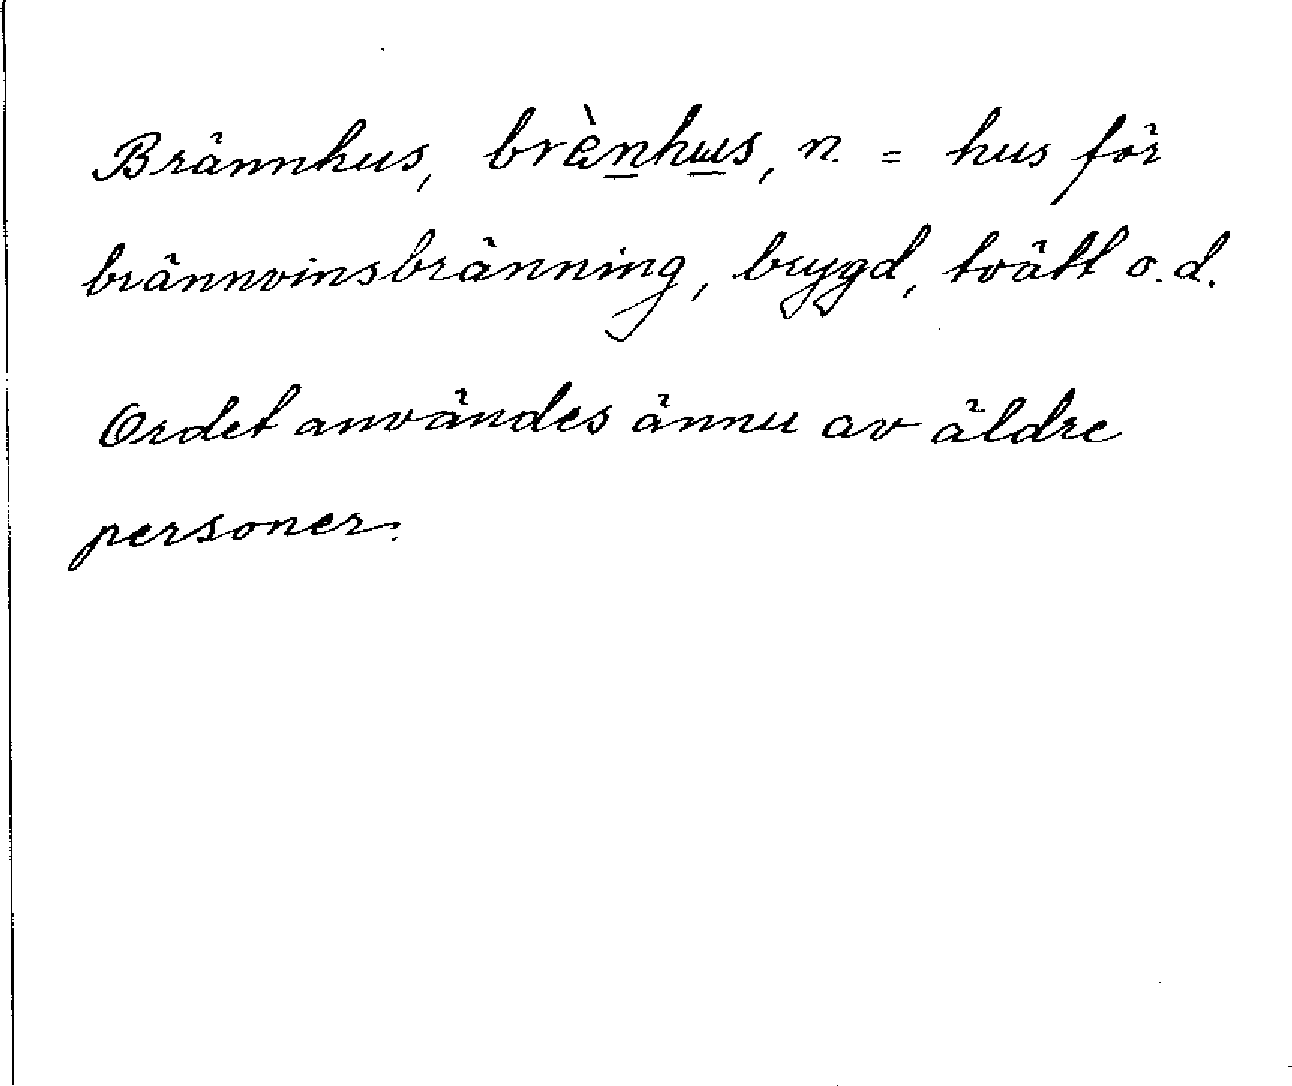 Brännhus, brὲn̲hɯ̲s, n. = hus för
brännvinsbränning, brygd, tvätt o.d.
Ordet användes ännu av äldre
personer.